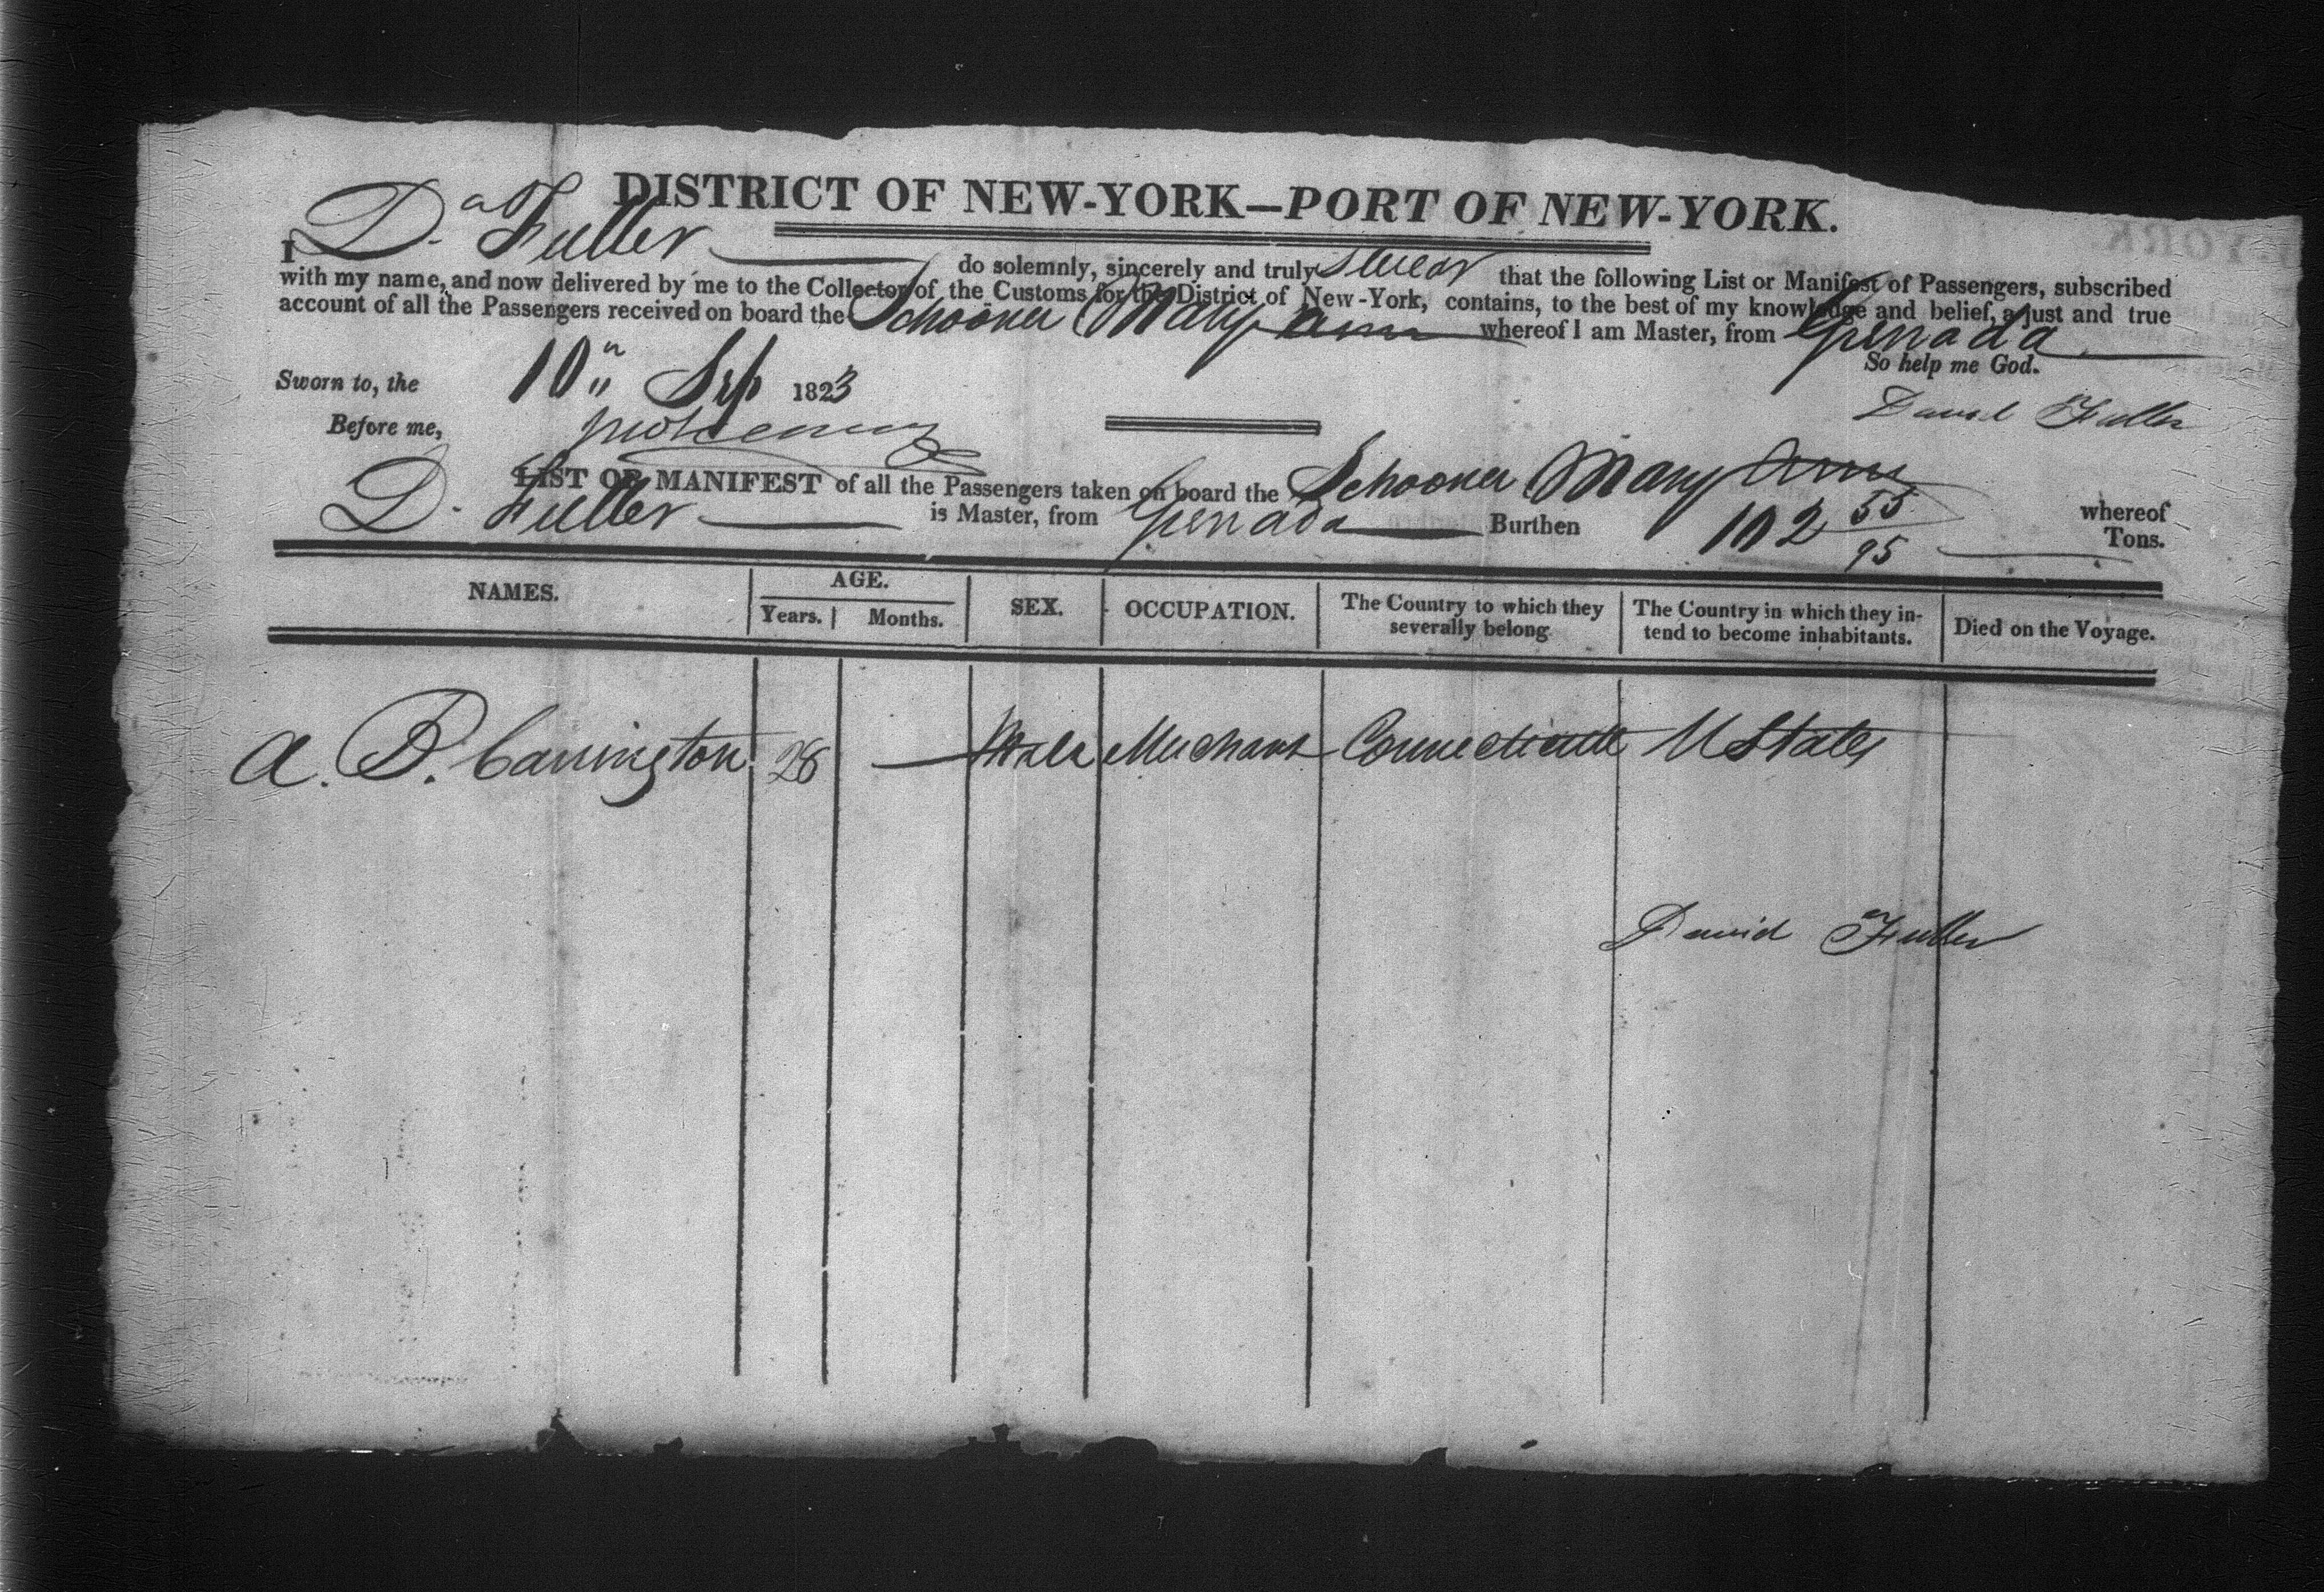 DISTRICT OF NEW-YORK—PORT OF NEW-YORK.
I D. Fuller do solemnly, sincerely and truly Swear that the following List or Manifest of Passengers, subscribed
with my name, and now delivered by me to the Collector of the Customs for the District of New-York, contains, to the best of my knowledge and belief, a just and true
account of all the Passengers received on board the Schooner Mary Ann whereof I am Master, from Grenada
So help me God.
Sworn to, the 10th Sep 1823
David Fuller
Before me,
LIST OR MANIFEST of all the Passengers taken on board the Schooner Mary Ann whereof
D. Fuller is Master, from Grenada Burthen 102 55/95 Tons.
NAMES. AGE. SEX. OCCUPATION. The Country to which they severally belong The Country in which they intend to become inhabitants. Died on the Voyage.
Years. Months.
A. B. Carrington 28 Male Merchant Connecticutt U States
David Fuller